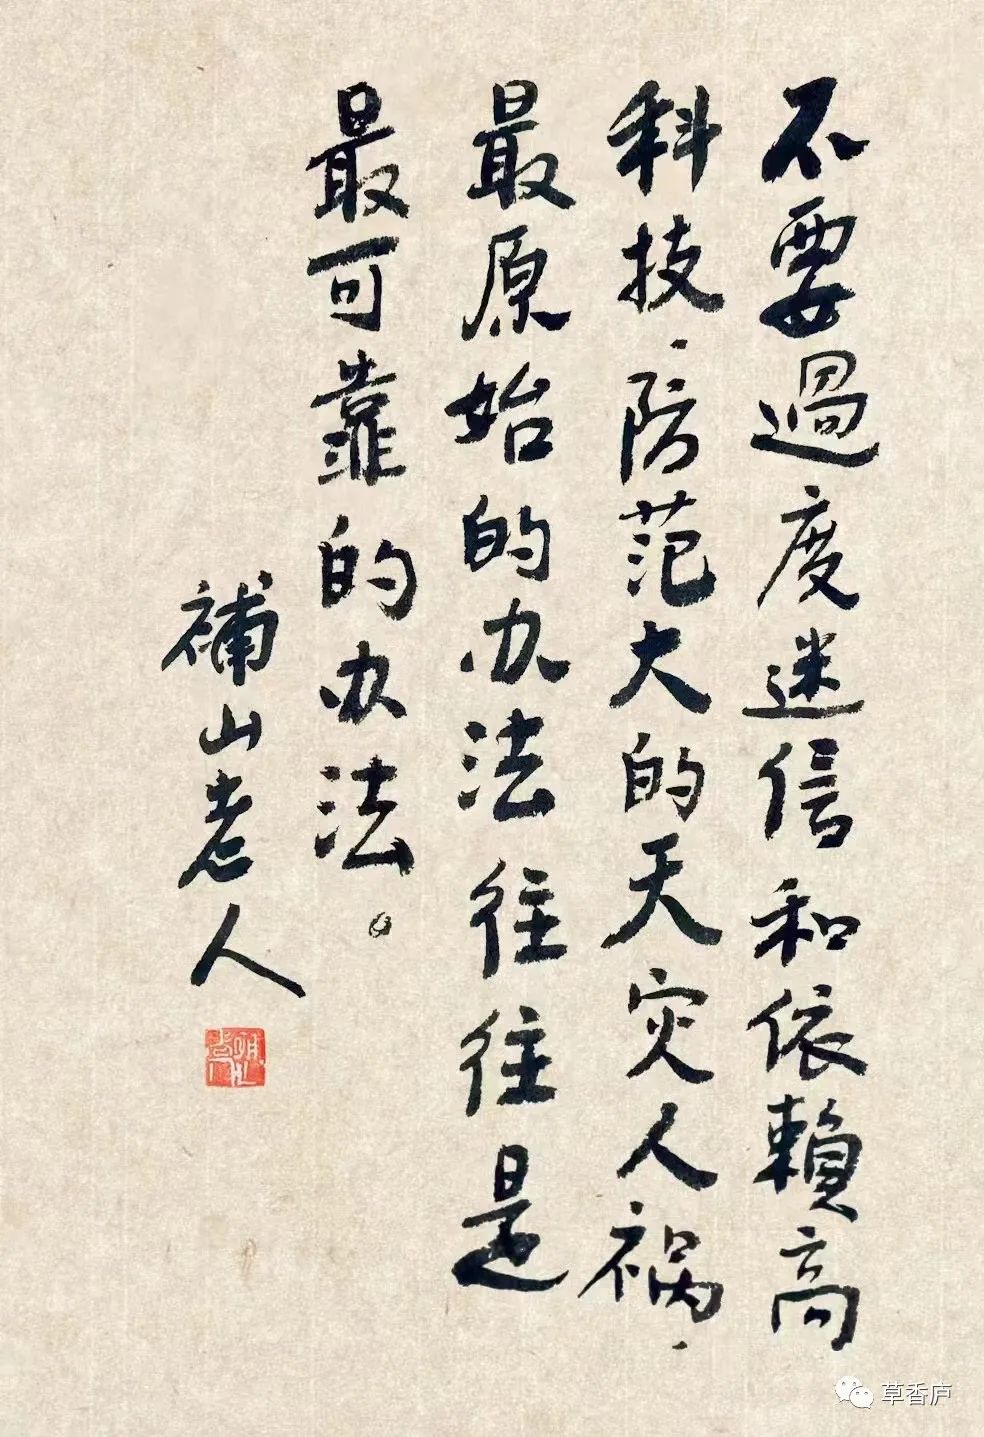 不要過度迷信和依賴高
科技、防范大的天灾人祸、
最原始的办法往往是
最可靠的办法。
補山老人
草香庐